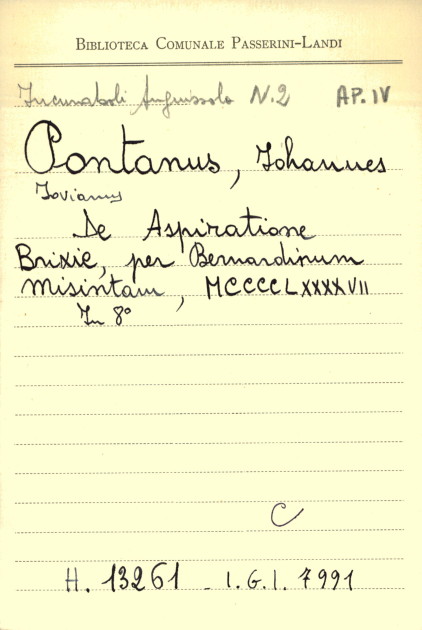 BIBLIOTECA COMUNALE PASSERINI-LANDI
Incunaboli Anguissola N.2 AP. IV
Pontanus, Johannes
Jovianus
De Aspiratione
Brixie, per Bernardinum
Misintam, MCCCCLXXXXVII
In 8°
C
H. 13261 - I.G.I. 7991